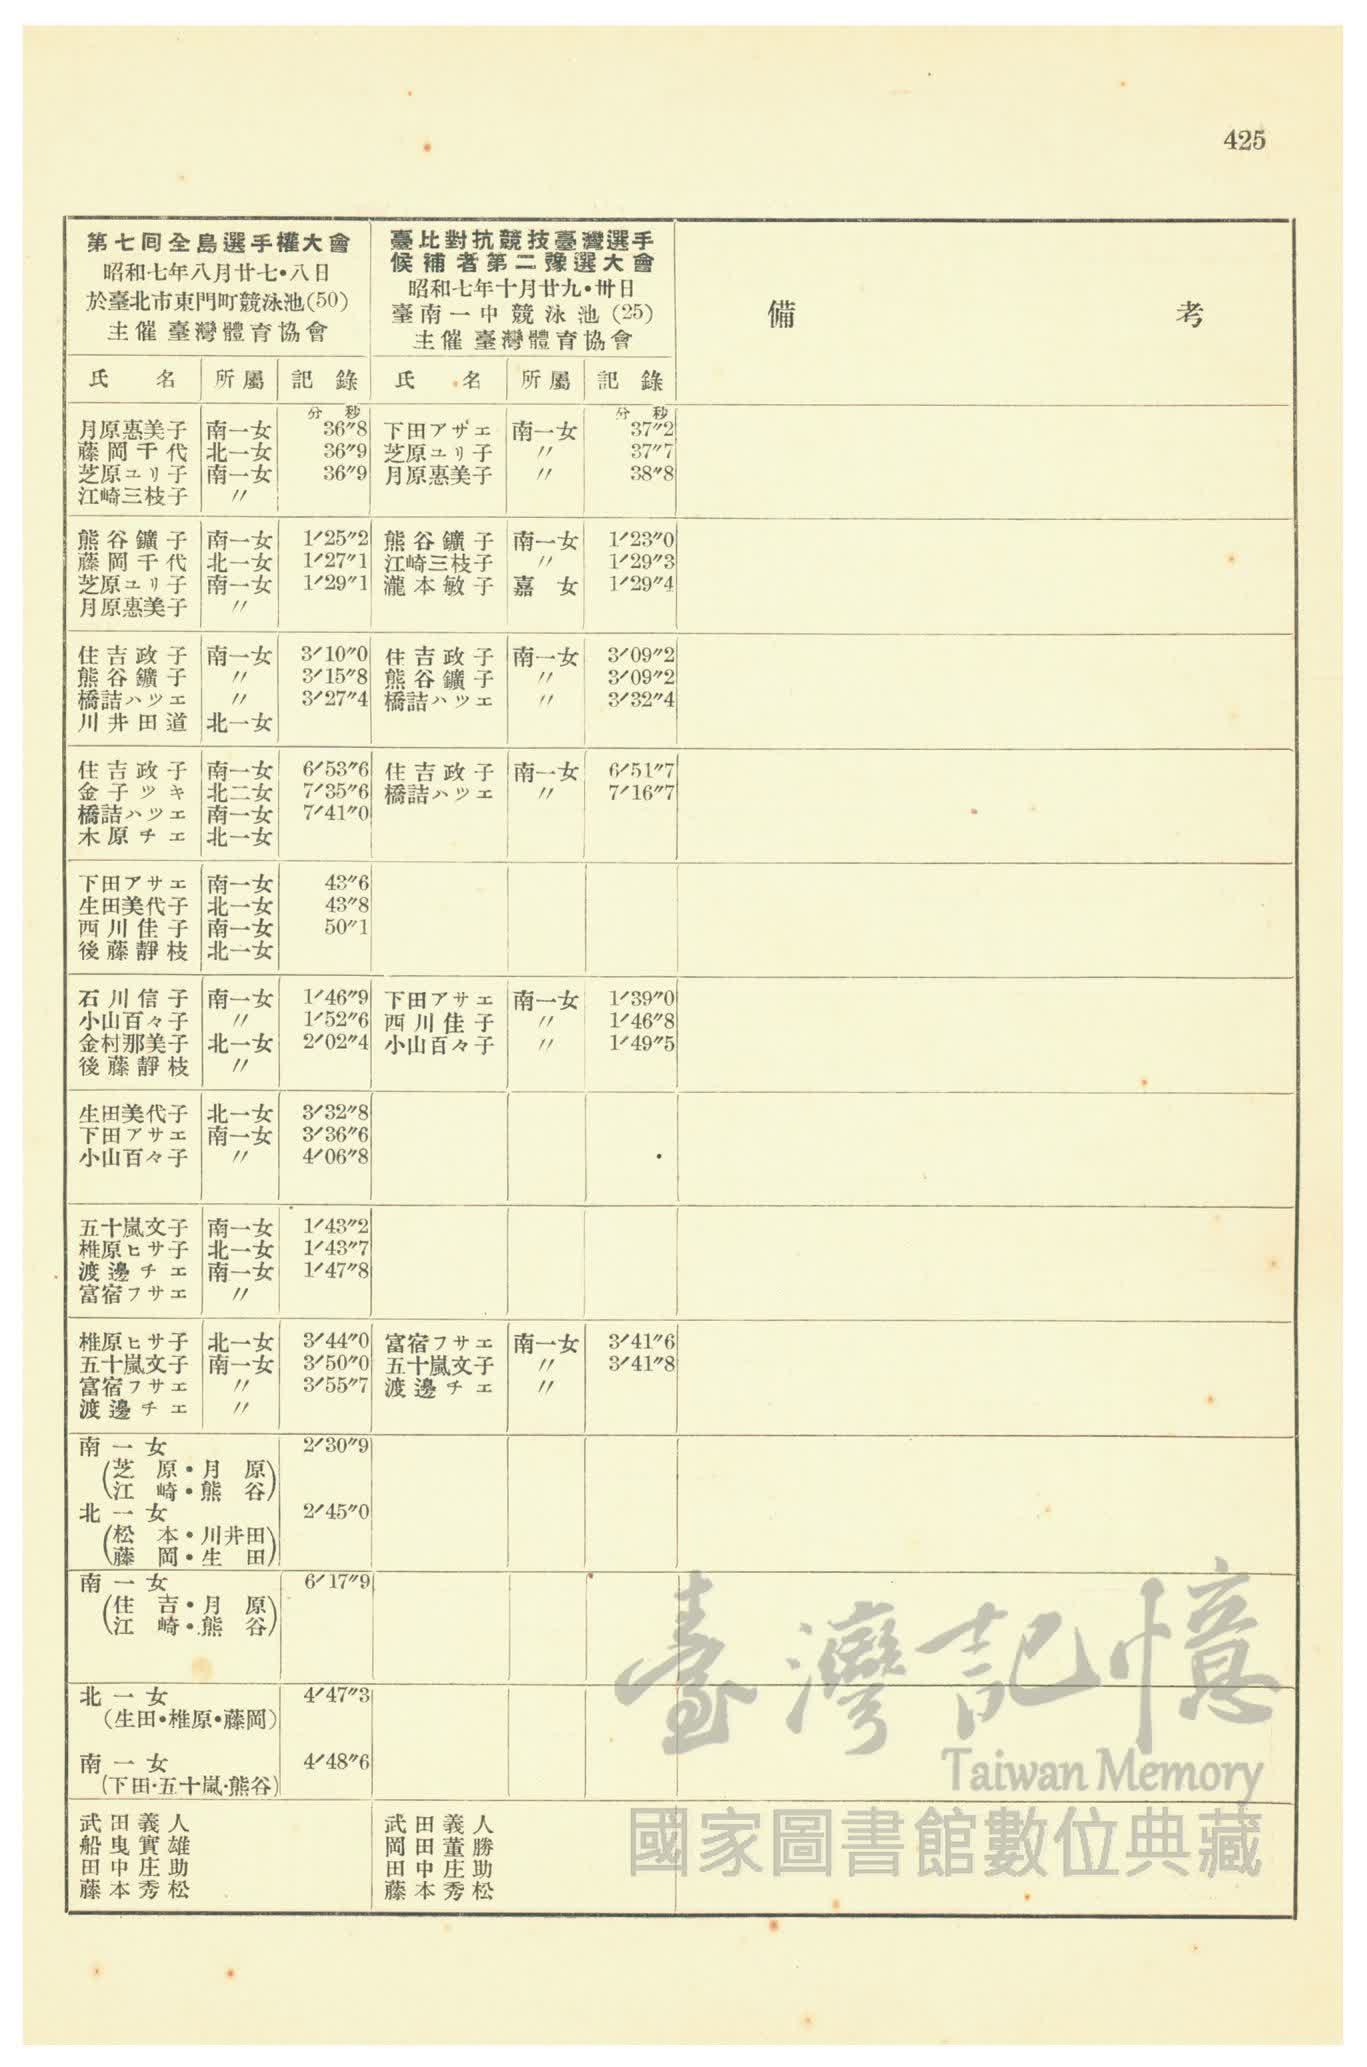 425
第七回全島選手權大會
昭和七年八月廿七•八日
於臺北市東門町競泳池(50)
主催 臺灣體育協會
臺比對抗競技臺灣選手
候補者第二豫選大會
昭和七年十月廿九•卅日
臺南一中競泳池(25)
主催 臺灣體育協會
備 考
氏 名 所屬 記 錄 氏 名 所屬 記 錄
分 秒 分 秒
月原惠美子 南一女 36″8 下田アザエ 南一女 37″2
藤岡千代 北一女 36″9 芝原ユリ子 〃 37″7
芝原ユリ子 南一女 36″9 月原惠美子 〃 38″8
江崎三枝子 〃
熊谷鑛子 南一女 1′25″2 熊谷鑛子 南一女 1′23″0
藤岡千代 北一女 1′27″1 江崎三枝子 〃 1′29″3
芝原ユリ子 南一女 1′29″1 瀧本敏子 嘉 女 1′29″4
月原惠美子 〃
住吉政子 南一女 3′10″0 住吉政子 南一女 3′09″2
熊谷鑛子 〃 3′15″8 熊谷鑛子 〃 3′09″2
橋詰ハツエ 〃 3′27″4 橋詰ハツエ 〃 3′32″4
川井田道 北一女
住吉政子 南一女 6′53″6 住吉政子 南一女 6′51″7
金子ツキ 北二女 7′35″6 橋詰ハツエ 〃 7′16″7
橋詰ハツエ 南一女 7′41″0
木原チエ 北一女
下田アサエ 南一女 43″6
生田美代子 北一女 43″8
西川佳子 南一女 50″1
後藤靜枝 北一女
石川信子 南一女 1′46″9 下田アサエ 南一女 1′39″0
小山百々子 〃 1′52″6 西川佳子 〃 1′46″8
金村那美子 北一女 2′02″4 小山百々子 〃 1′49″5
後藤靜枝 〃
生田美代子 北一女 3′32″8
下田アサエ 南一女 3′36″6
小山百々子 〃 4′06″8
五十嵐文子 南一女 1′43″2
椎原ヒサ子 北一女 1′43″7
渡邊チエ 南一女 1′47″8
富宿フサエ 〃
椎原ヒサ子 北一女 3′44″0 富宿フサエ 南一女 3′41″6
五十嵐文子 南一女 3′50″0 五十嵐文子 〃 3′41″8
富宿フサエ 〃 3′55″7 渡邊チエ 〃
渡邊チエ 〃
南一女 2′30″9
(芝 原•月 原
江 崎•熊 谷)
北一女 2′45″0
(松 本•川井田
藤 岡•生 田)
南一女 6′17″9
(住 吉•月 原
江 崎•熊 谷)
北一女 4′47″3
(生田•椎原•藤岡)
南一女 4′48″6
(下田•五十嵐•熊谷)
武田義人 武田義人
船曳實雄 岡田董勝
田中庄助 田中庄助
藤本秀松 藤本秀松
臺灣記憶
Taiwan Memory
國家圖書館數位典藏